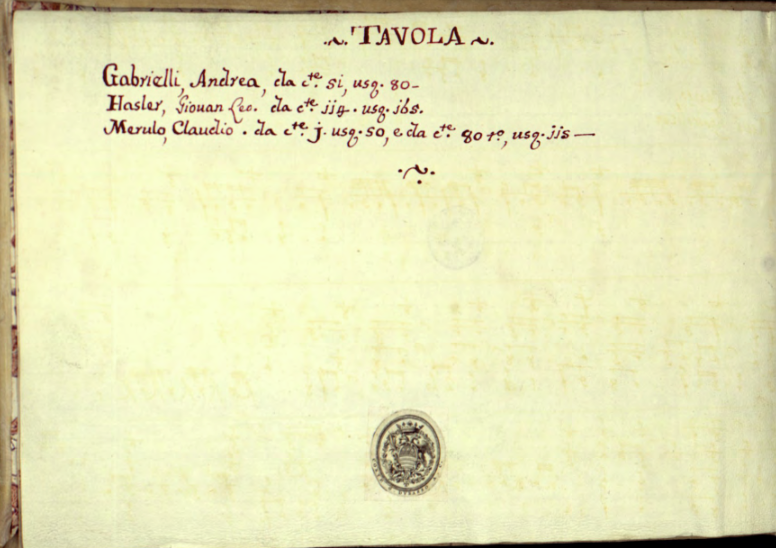 .~. TAVOLA ~.
Gabrielli, Andrea, da cte. 51, usq. 80-
Hasler, Giouan Leo. da cte. jj4. usq. j65.
Merulo, Claudio. da cte. j. usq. 50, e da cte. 80 to, usq. jj5 —